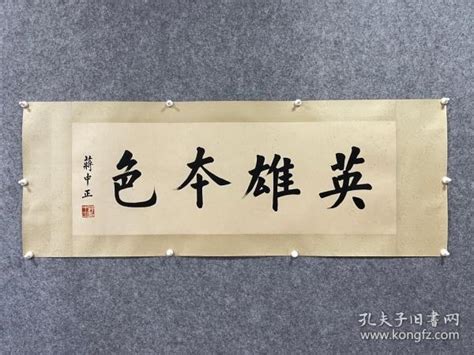 英雄本色
蒋中正
孔夫子旧书网
www.kongfz.com